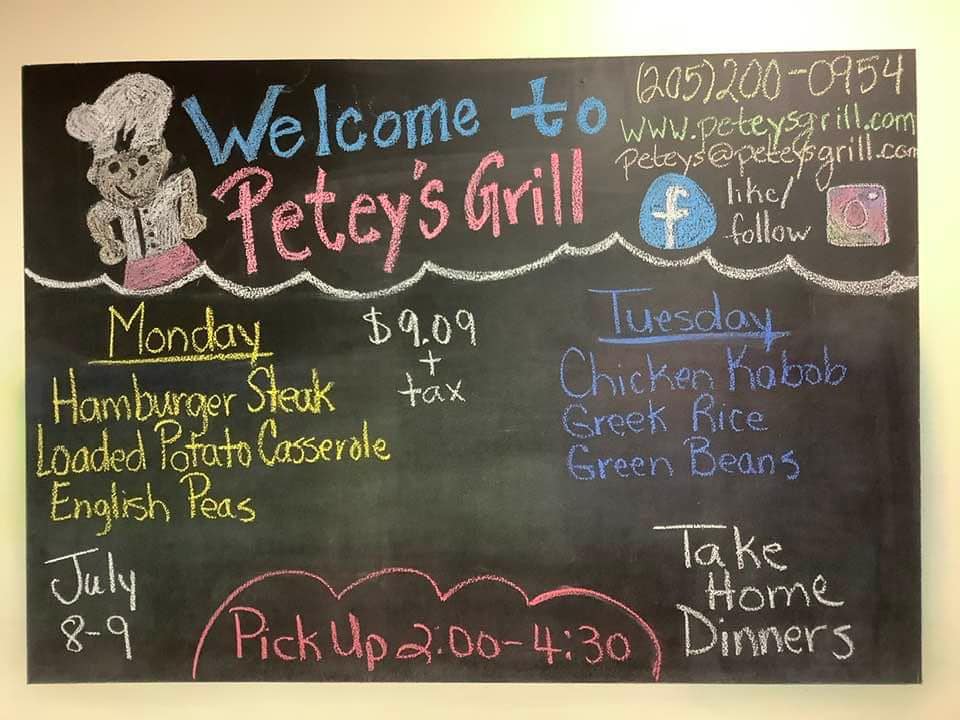 Welcome to
Petey's Grill
(205)200-0954
www.peteysgrill.com
peteys@peteysgrill.com
f
like/
follow
Monday
Hamburger Steak
Loaded Potato Casserole
English Peas
$9.09
+
tax
Tuesday
Chicken Kabob
Greek Rice
Green Beans
July
8-9
Pick Up 2:00-4:30
Take
Home
Dinners